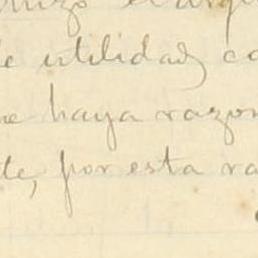 de utilidad, ca
ue haya razon
te, por esta ra